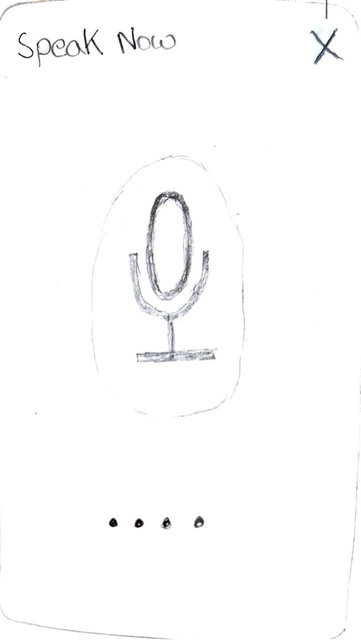 Speak Now
X